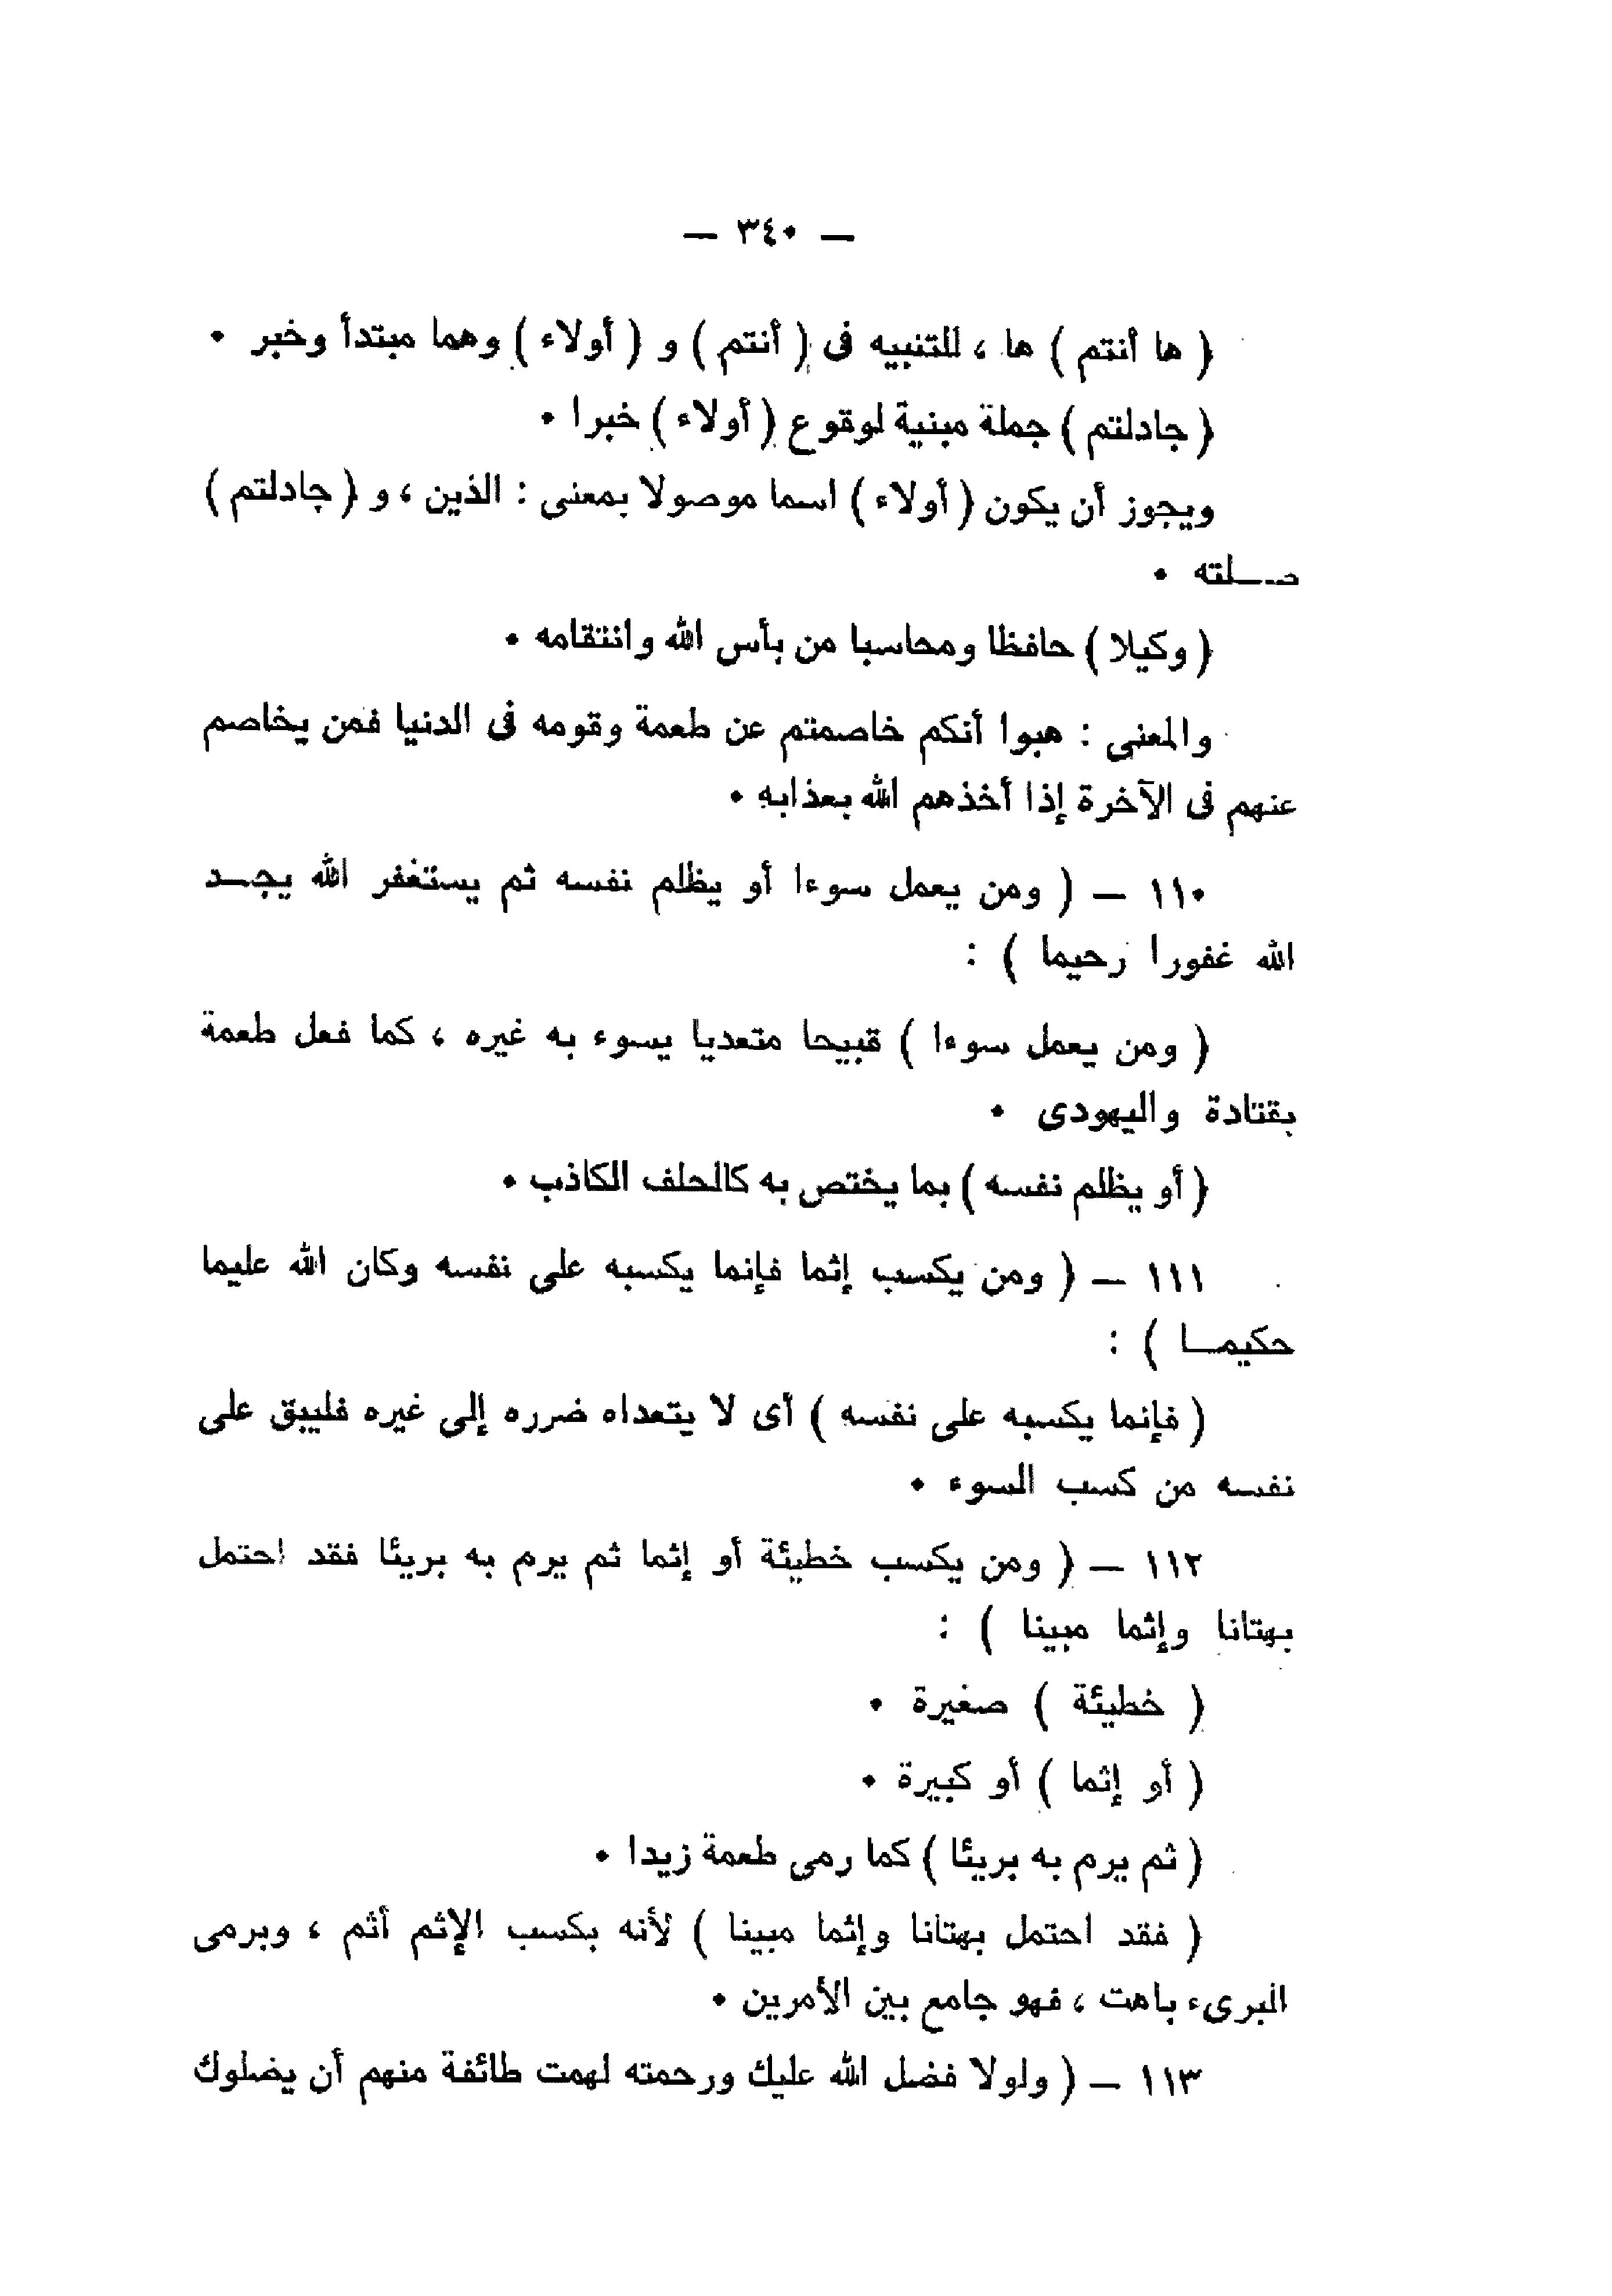 — ٣٤٠ —
( ها أنتم ) ها ، للتنبيه فى ( أنتم ) و ( أولاء ) وهما مبتدأ وخبر ٠
( جادلتم ) جملة مبنية لوقوع ( أولاء ) خبرا ٠
ويجوز أن يكون ( أولاء ) اسما موصولا بمعنى : الذين ، و ( جادلتم )
صـــلته ٠
( وكيلا ) حافظا ومحاسبا من بأس الله وانتقامه ٠
والمعنى : هبوا أنكم خاصمتم عن طعمة وقومه فى الدنيا فمن يخاصم
عنهم فى الآخرة إذا أخذهم الله بعذابه ٠
١١٠ — ( ومن يعمل سوءا أو يظلم نفسه ثم يستغفر الله يجــد
الله غفورا رحيما ) :
( ومن يعمل سوءا ) قبيحا متعديا يسوء به غيره ، كما فعل طعمة
بقتادة واليهودى ٠
( أو يظلم نفسه ) بما يختص به كالحلف الكاذب ٠
١١١ — ( ومن يكسب إثما فإنما يكسبه على نفسه وكان الله عليما
حكيمــا ) :
( فإنما يكسبه على نفسه ) أى لا يتعداه ضرره إلى غيره فليبق على
نفسه من كسب السوء ٠
١١٢ — ( ومن يكسب خطيئة أو إثما ثم يرم به بريئا فقد احتمل
بهتانا وإثما مبينا ) :
( خطيئة ) صغيرة ٠
( أو إثما ) أو كبيرة ٠
( ثم يرم به بريئا ) كما رمى طعمة زيدا ٠
( فقد احتمل بهتانا وإثما مبينا ) لأنه بكسب الإثم أثم ، وبرمى
البرىء باهت ، فهو جامع بين الأمرين ٠
١١٣ — ( ولولا فضل الله عليك ورحمته لهمت طائفة منهم أن يضلوك